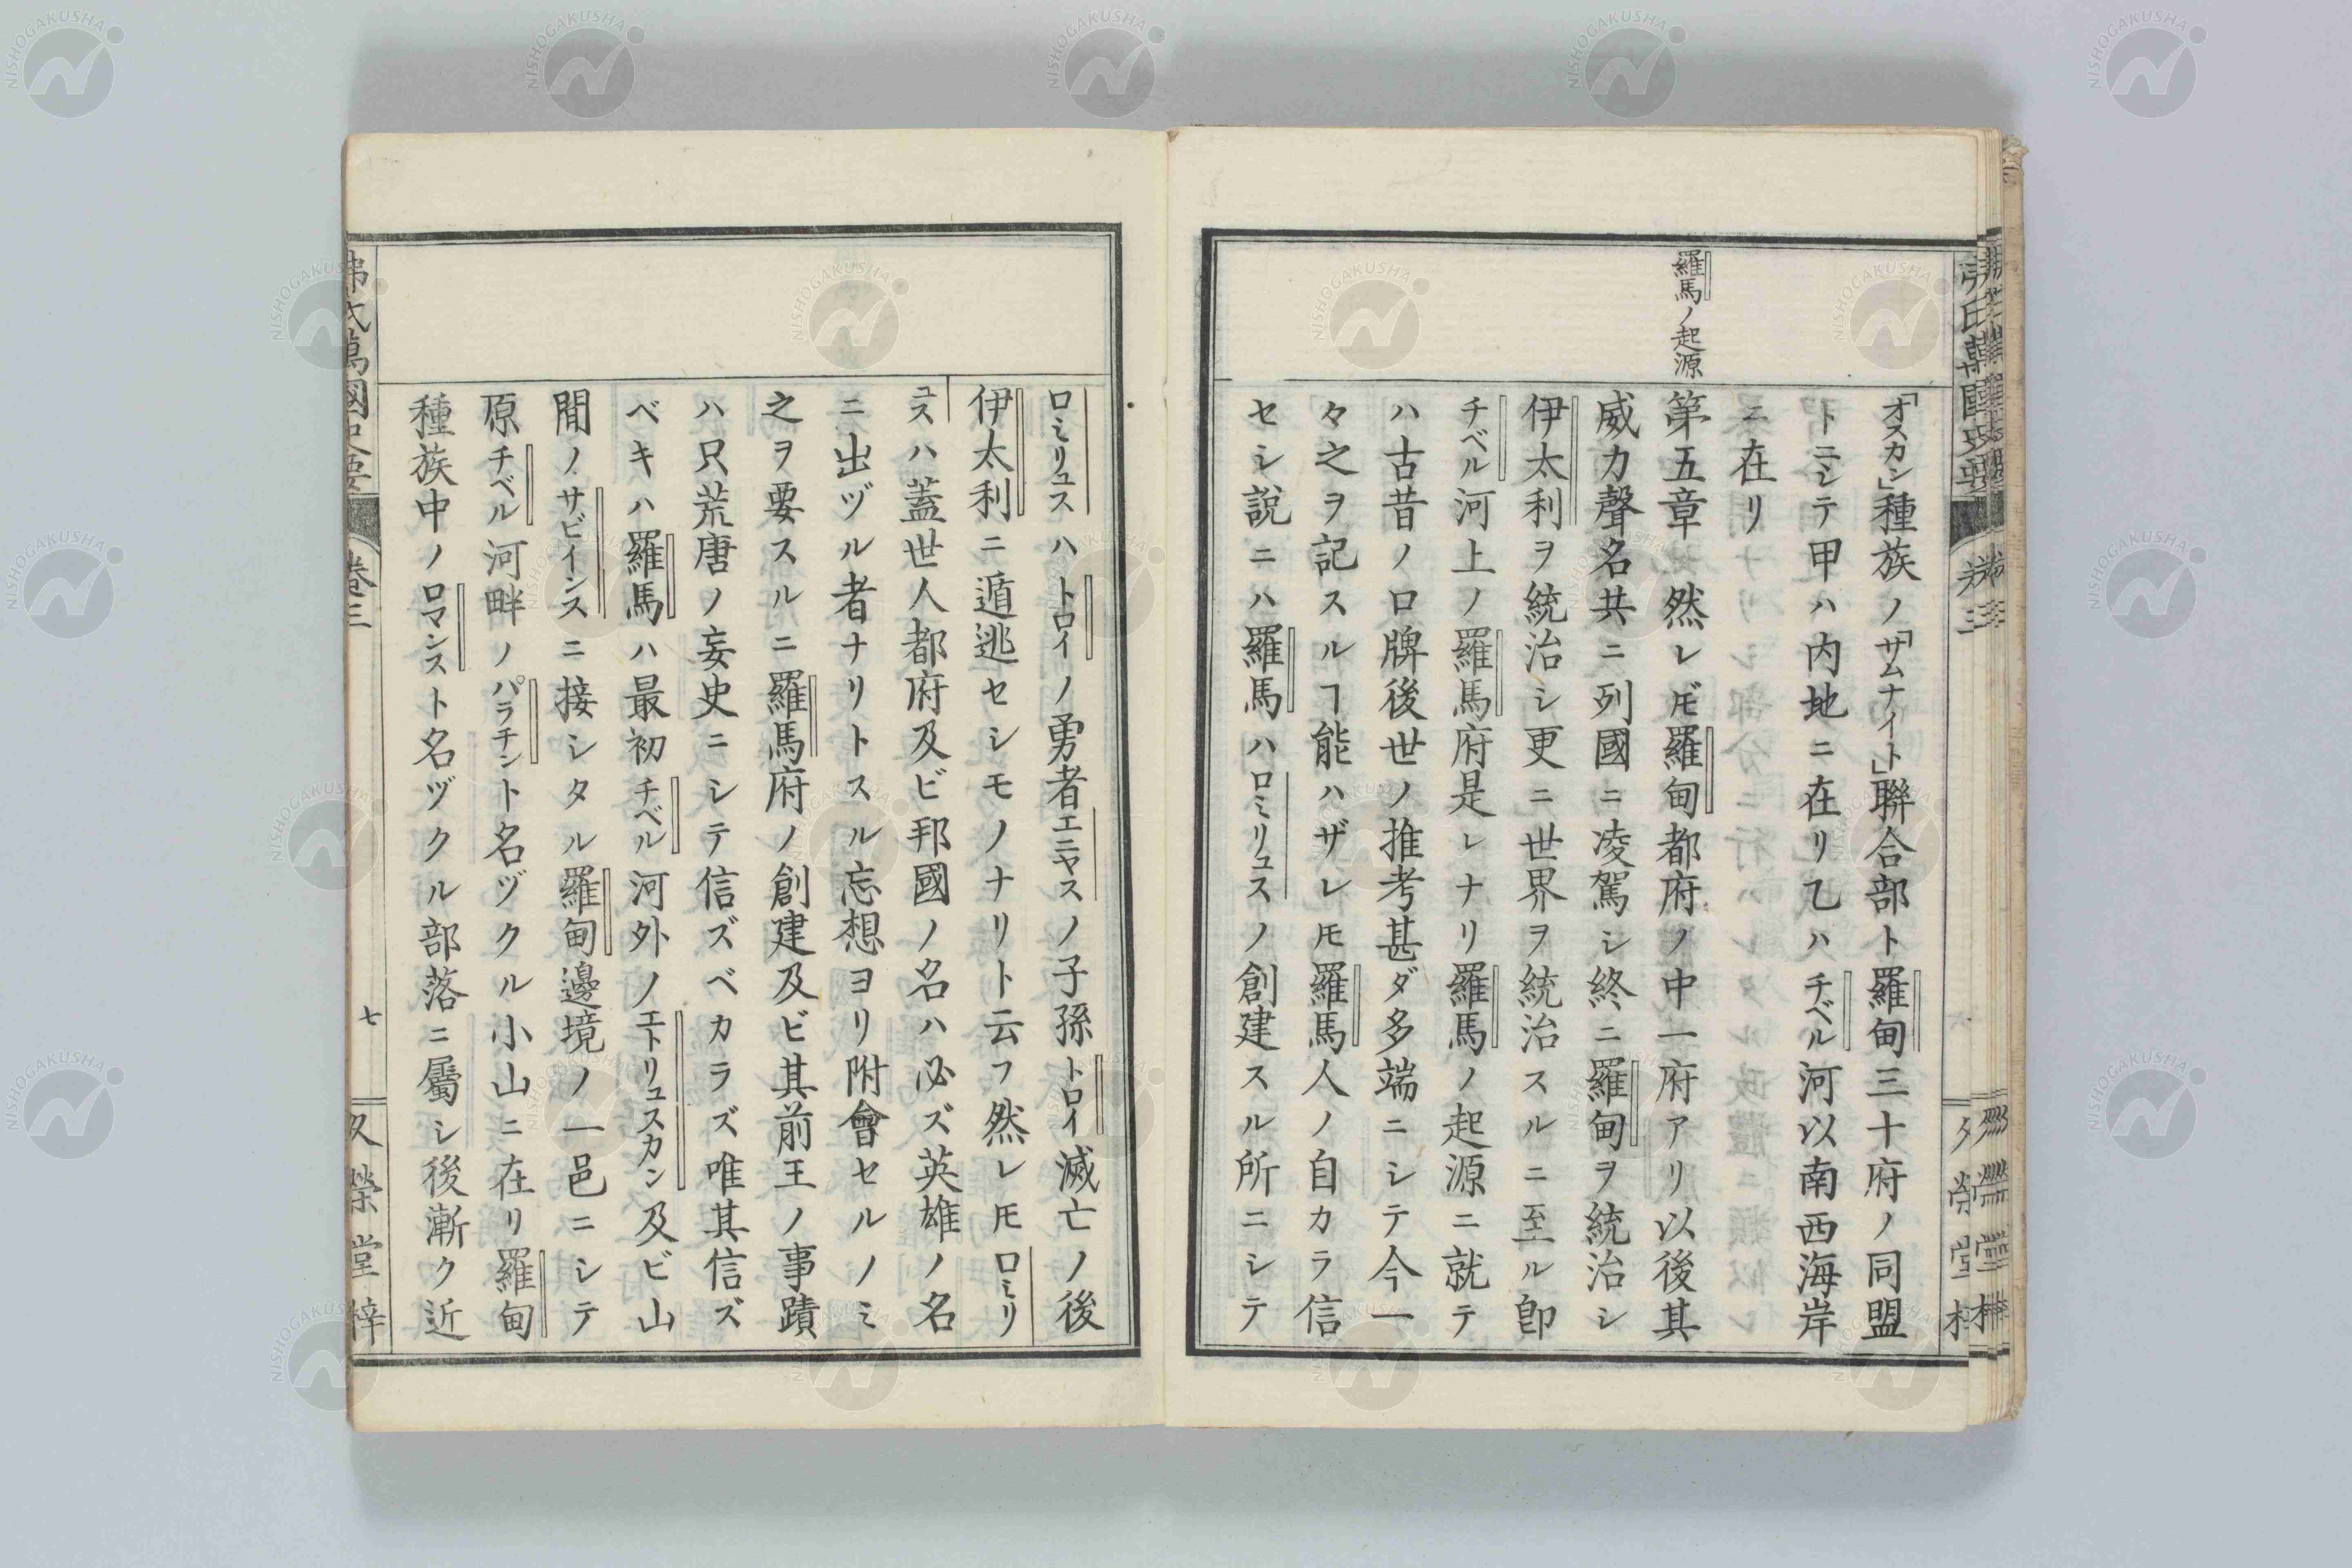 羅馬ノ起源
「オスカン」種族ノ「サムナイト」聯合部ト羅甸三十府ノ同盟
トニシテ甲ハ内地ニ在リ乙ハチベル河以南西海岸
ニ在リ
第五章 然レ𪜈羅甸都府ノ中一府アリ以後其
威力聲名共ニ列國ニ凌駕シ終ニ羅甸ヲ統治シ
伊太利ヲ統治シ更ニ世界ヲ統治スルニ至ル卽
チベル河上ノ羅馬府是レナリ羅馬ノ起源ニ就テ
ハ古昔ノ口牌後世ノ推考甚ダ多端ニシテ今一
々之ヲ記スルヿ能ハザレ𪜈羅馬人ノ自カラ信
セシ說ニハ羅馬ハロミリュスノ創建スル所ニシテ
ロミリュスハトロイノ勇者エニヤスノ子孫トロイ滅亡ノ後
伊太利ニ遁逃セシモノナリト云フ然レ𪜈ロミリ
ュスハ蓋世人都府及ビ邦國ノ名ハ必ズ英雄ノ名
ニ出ヅル者ナリトスル忘想ヨリ附會セルノミ
之ヲ要スルニ羅馬府ノ創建及ビ其前王ノ事蹟
ハ只荒唐ノ妄史ニシテ信ズベカラズ唯其信ズ
ベキハ羅馬ハ最初チベル河外ノエトリュスカン及ビ山
間ノサビインスニ接シタル羅甸邊境ノ一邑ニシテ
原チベル河畔ノパラチント名ヅクル小山ニ在リ羅甸
種族中ノロマンスト名ヅクル部落ニ屬シ後漸ク近
弗氏萬國史要
卷三
七
又榮堂梓
NISHOGAKUSHA